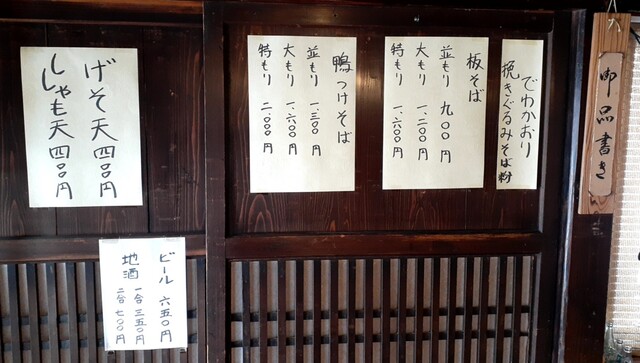 御品書き
でわかおり
挽きぐるみそば粉
板そば
並もり 九〇〇円
大もり 一、二〇〇円
特もり 一、六〇〇円
鴨つけそば
並もり 一、三〇〇円
大もり 一、六〇〇円
特もり 二、〇〇〇円
げそ天 四〇〇円
ししゃも天 四〇〇円
ビール 六五〇円
地酒
一合 三五〇円
二合 七〇〇円